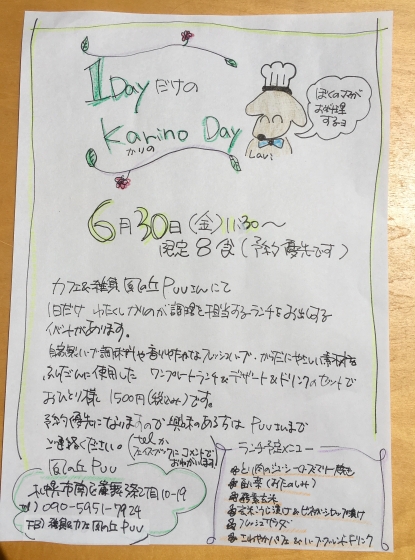 1Dayだけの
Karino Day
かりの
ぼくのママが
お料理
するヨ
Lavi
6月30日(金)11:30～
限定8食(予約優先です)
カフェ&雑貨 風の丘PUUさんにて
1日だけ かりのが調理を担当するランチをお出しする
イベントがあります。
自然派の調味料や香りゆたかなフレッシュハーブ・からだにやさしい素材を
ふんだんに使用した ワンプレートランチ&デザート&ドリンクのセットで
おひとり様 1500円(税込み)です。
予約優先になりますので 興味のある方は PUUさんまで
ご連絡ください。
telか
フェイスブックにコメントで
おねがいします!
風の丘 PUU
札幌市南区 2丁目10-19
090-5951-7924
FB) 雑貨&カフェ 風の丘 PUU
ランチ予定メニュー
とり肉のジューシーローズマリー焼き
副菜(おたのしみ)
酵素玄米
フレッシュサラダ